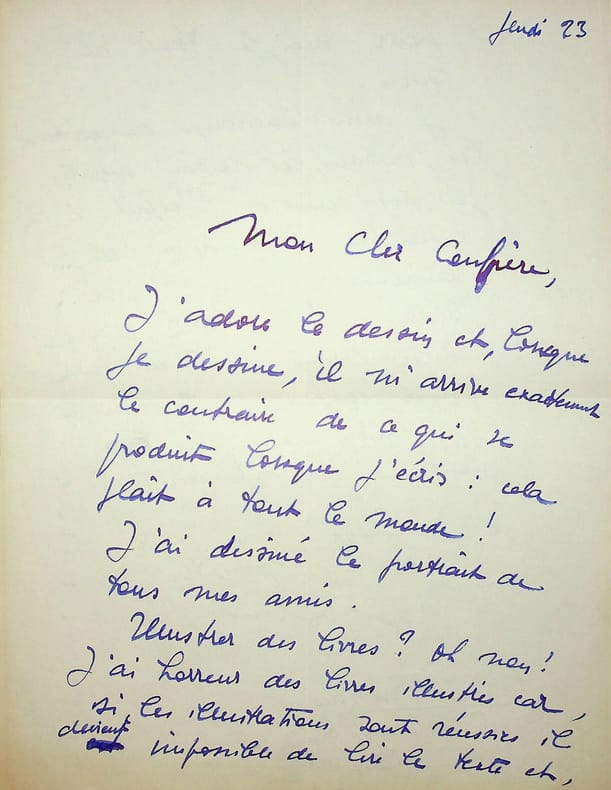 Jeudi 23
Mon Cher Confrère,
J'adore le dessin et, lorsque
je dessine, il m'arrive exactement
le contraire de ce qui se
produit lorsque j'écris : cela
plaît à tout le monde !
J'ai dessiné le portrait de
tous mes amis.
Illustrer des livres ? Oh non !
J'ai horreur des livres illustrés car,
si les illustrations sont réussies il
devient impossible de lire le texte et,